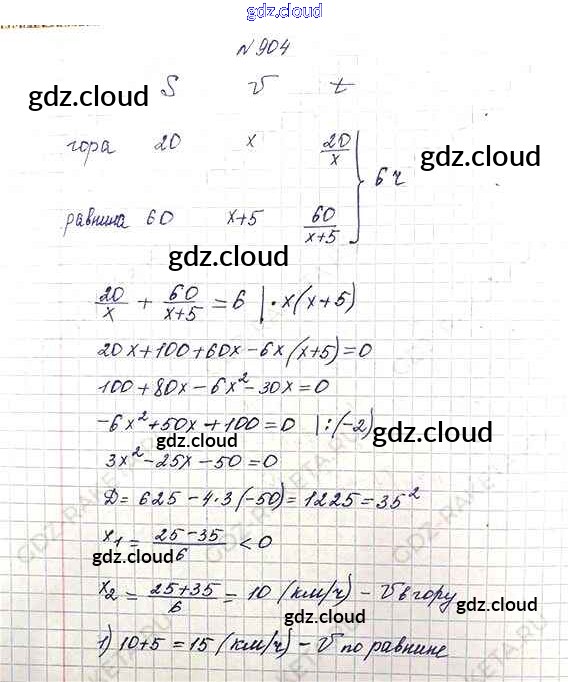 gdz.cloud
№904
S V t
gdz.cloud
гора 20 x 20/x
gdz.cloud
6 ч
равнина 60 x+5 60/(x+5)
gdz.cloud
20/x + 60/(x+5) = 6 | · x(x+5)
20x+100+60x-6x(x+5)=0
100+80x-6x²-30x=0
-6x²+50x+100=0 |:(-2)
gdz.cloud
gdz.cloud
3x²-25x-50=0
D=625-4·3(-50)=1225=35²
x₁ = (25-35)/6 < 0
gdz.cloud
x₂ = (25+35)/6 = 10 (км/ч) - V в гору
gdz.cloud
1) 10+5=15 (км/ч) - V по равнине
gdz.cloud
GDZ-RAKETA.RU